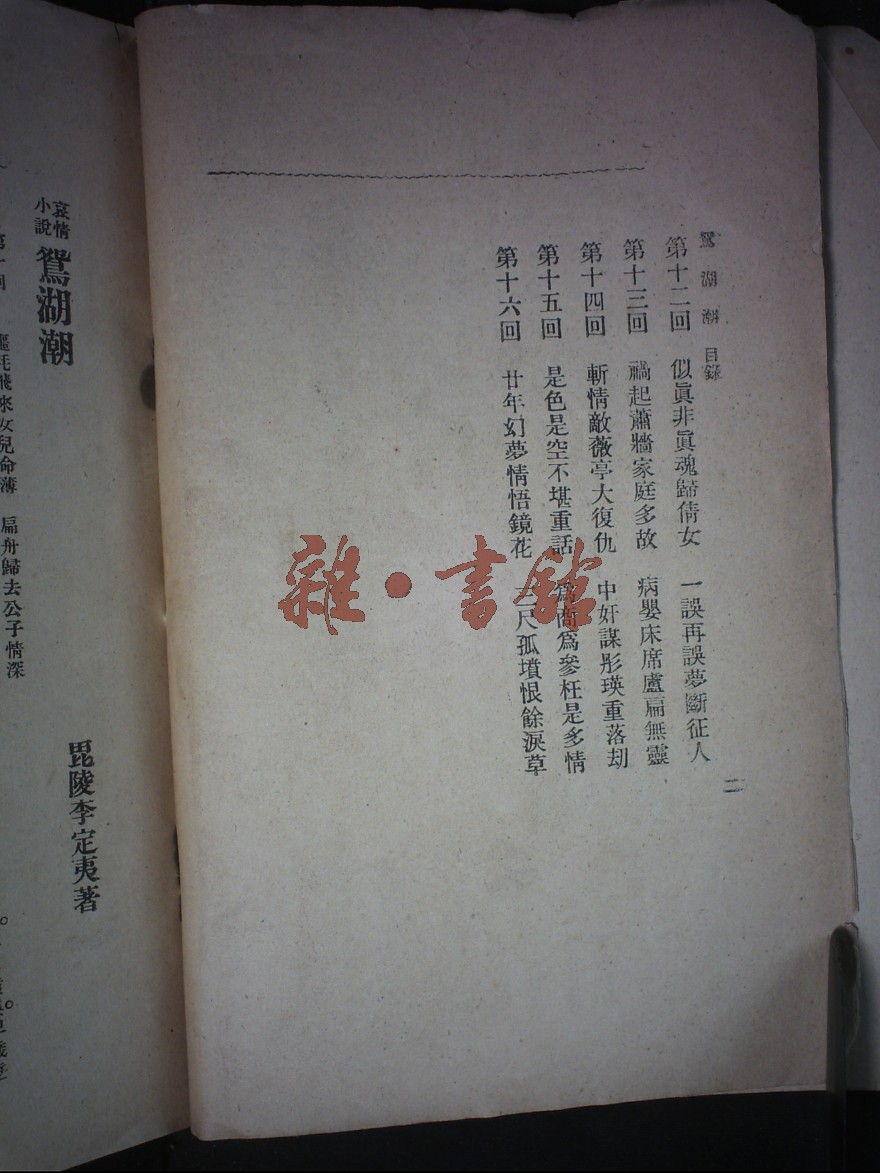 鴛湖潮 目錄
第十二回 似眞非眞魂歸倩女 一誤再誤夢斷征人
第十三回 禍起蕭牆家庭多故 病嬰床席盧扁無靈
第十四回 斬情敵薇亭大復仇 中奸謀彤瑛重落劫
第十五回 是色是空不堪重話 爲商爲參枉是多情
第十六回 廿年幻夢情悟鏡花 三尺孤墳恨餘淚草
二
雜·書館
哀情小說 鴛湖潮
毘陵李定夷著
飛來女兒命薄 扁舟歸去公子情深